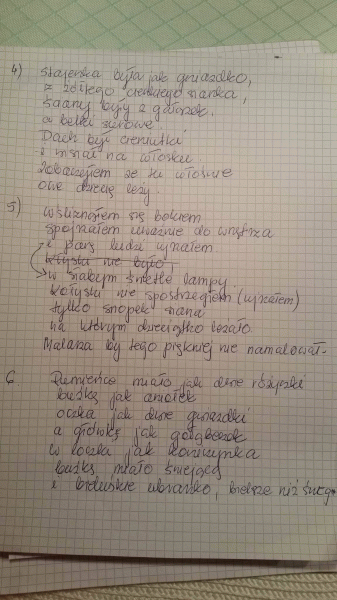 4) Stajenka była jak gniazdko,
z żółtego cieniuego sianka,
ściany były z gałązek,
a belki surowe.
Dach był cieniutki
i wisiał na włosku.
Zobaczyłem że tu właśnie
owe dziecię leży.
5) Wśliznąłem się bokiem
spojrzałem uważnie do wnętrza
i parę ludzi ujrzałem.
kołyski nie było
w słabym świetle lampy
kołyski nie spostrzegłem (ujrzałem)
tylko snopek siana
na którym dzieciątko leżało.
Malarz by tego piękniej nie namalował.
6 Rumieńce miało jak dwie różyczki
buźkę jak aniołek
oczka jak dwie gwiazdki
a główkę jak gołąbeczek
w loczka jak
buźkę miało śmiejącą
i bieluśkie ubranko, bielsze niż śnieg.